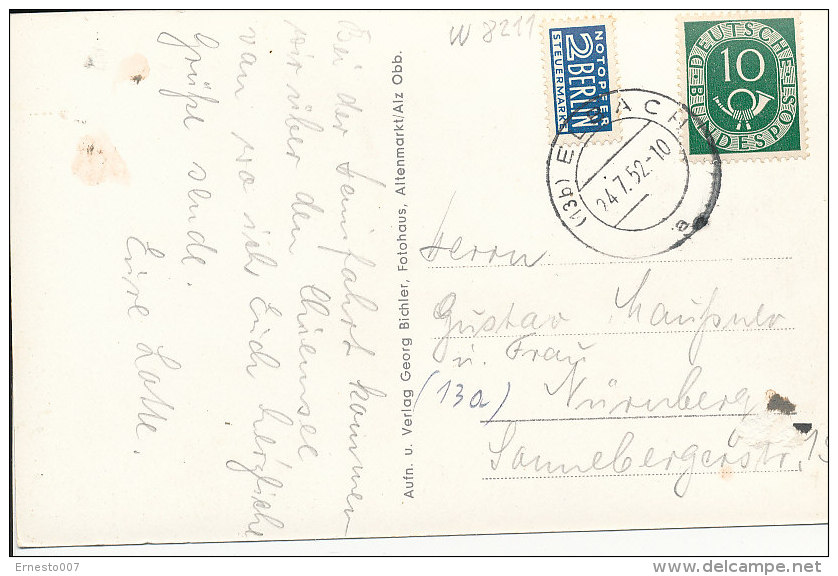 W 8211
NOTOPFER
2 BERLIN
STEUERMARKE
DEUTSCHE
10
BUNDESPOST
(13b) E
ACH
24.7.52-10
Bei der Heimfahrt kommen
wir über den Chiemsee
von wo ich Euch herzliche
Grüße sende.
Eure Lotte.
Aufn. u. Verlag Georg Bichler, Fotohaus, Altenmarkt/Alz Obb.
Herrn
Gustav
u. Frau
(13a) Nürnberg
Sonnebergerstr. 15
Ernesto007
delcampe.net